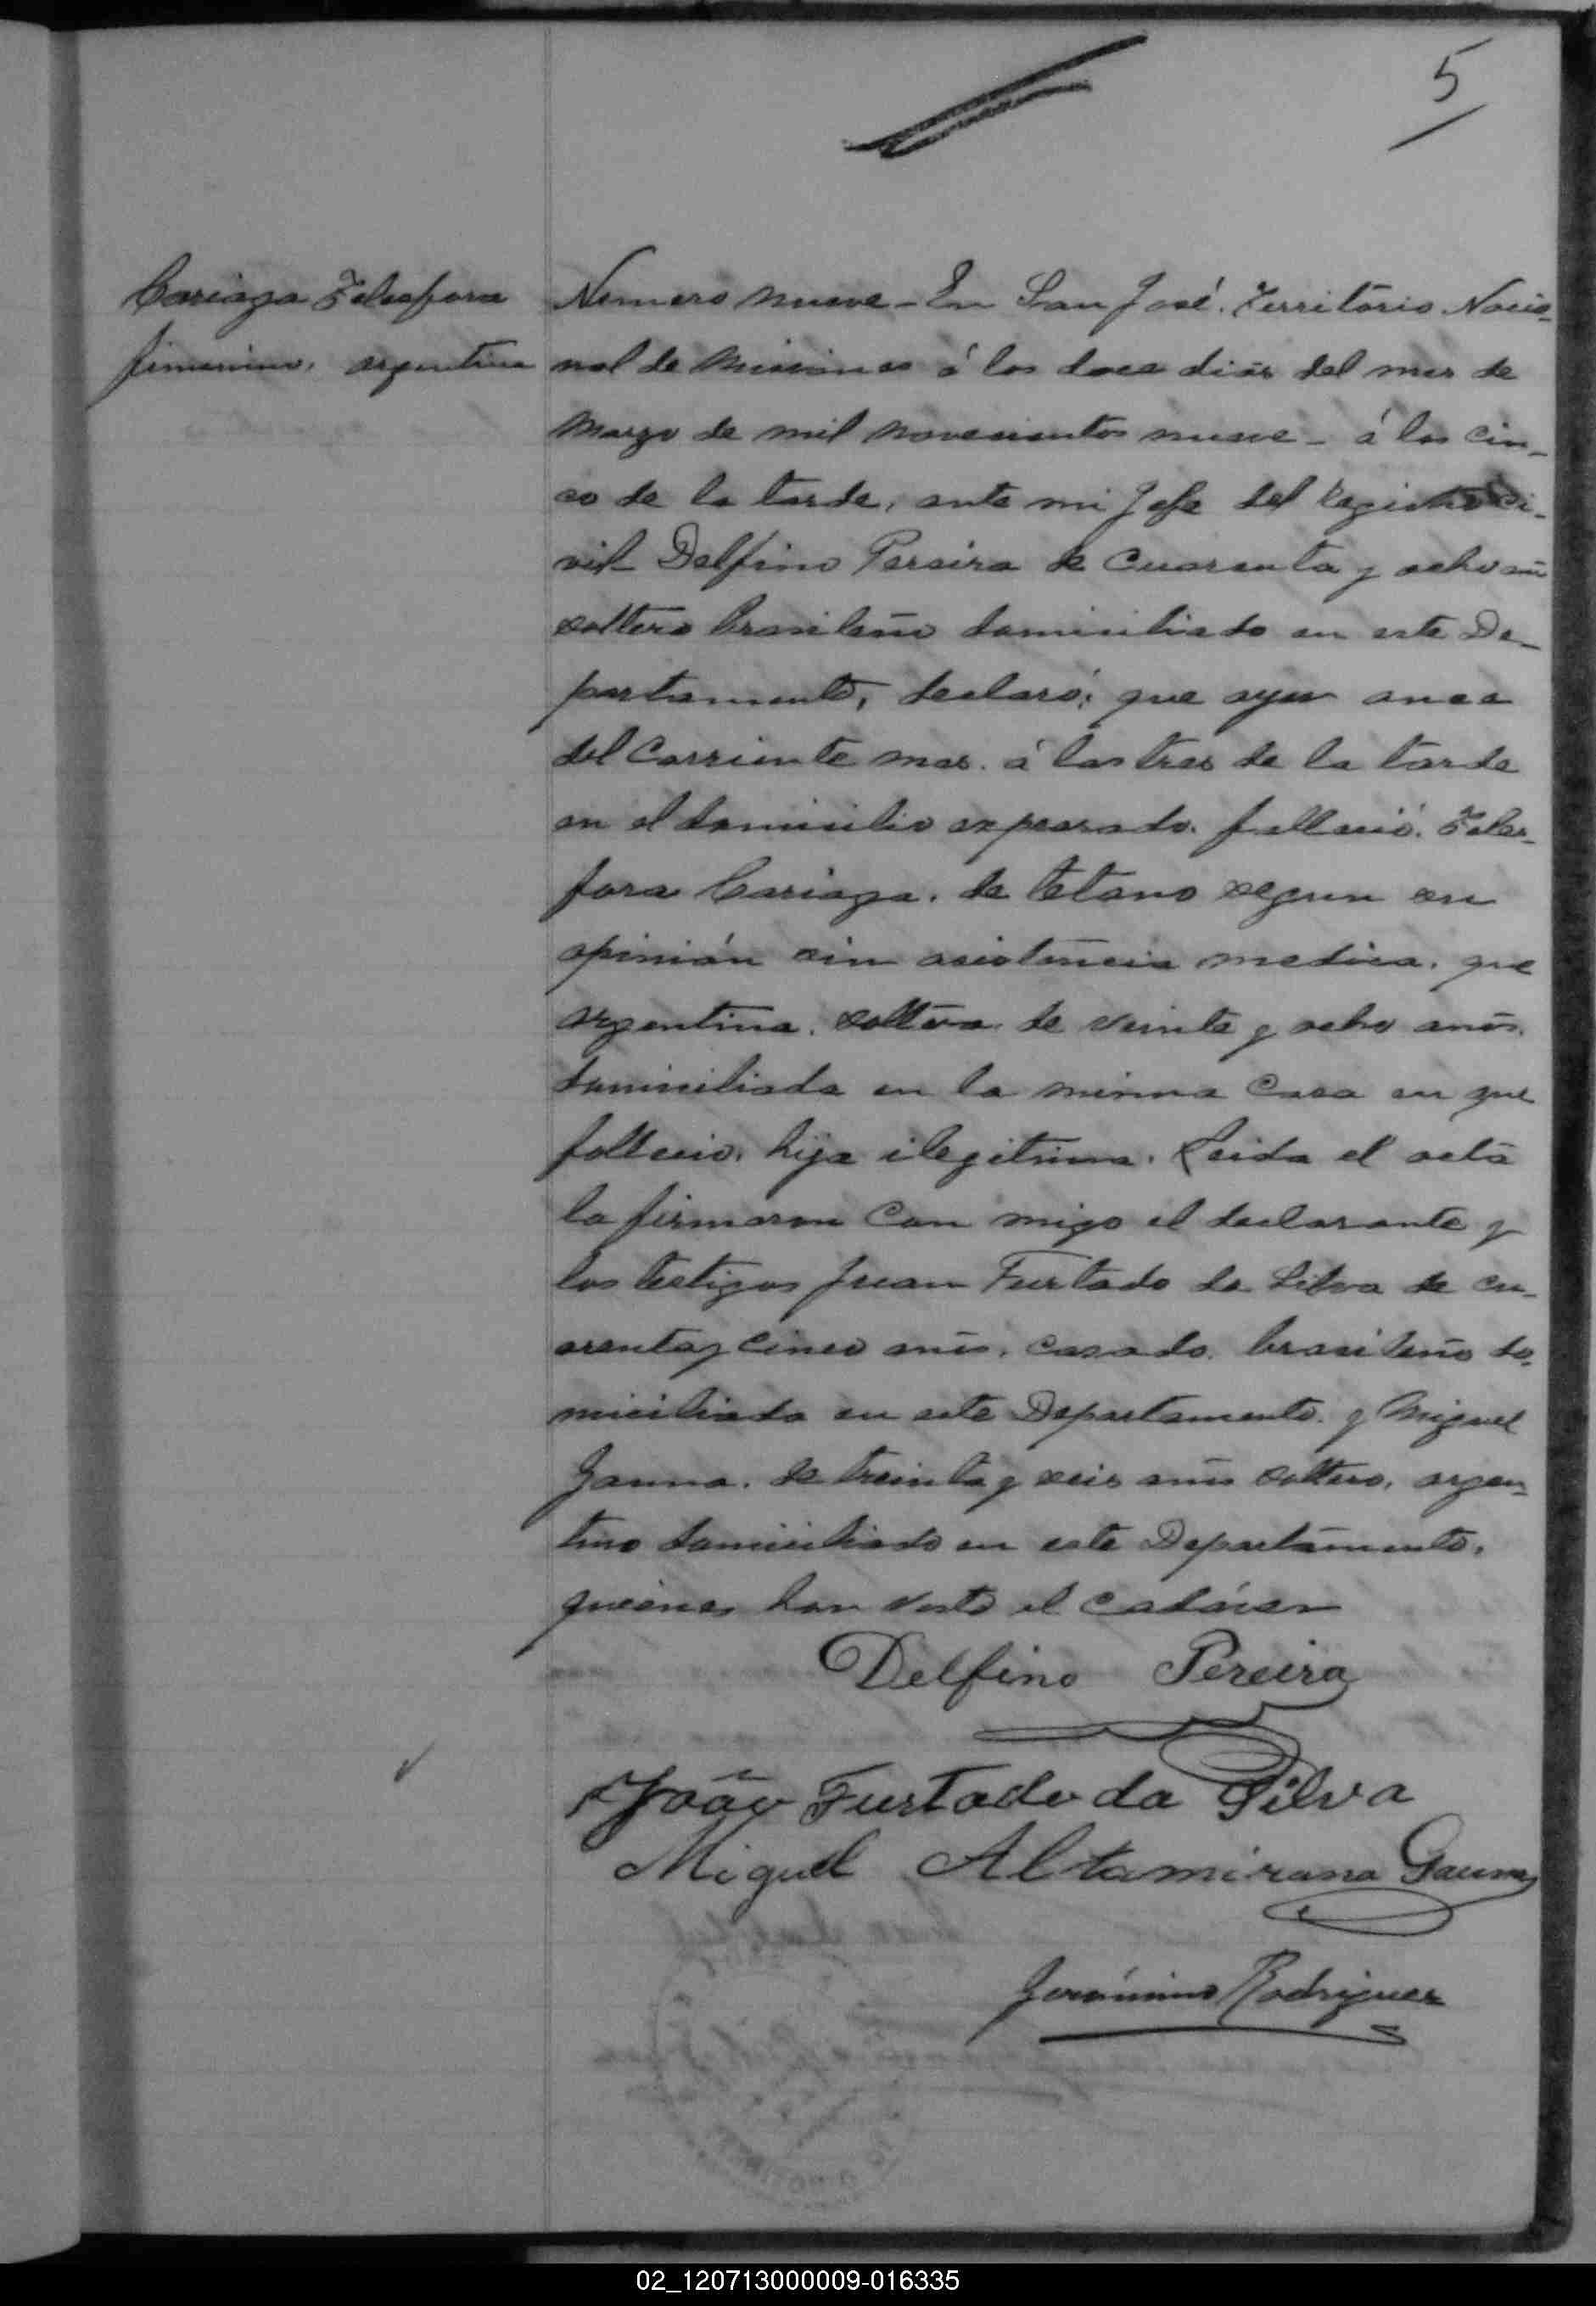 5
Cariaga Telesfora
femenino, argentina
Numero nueve - En San José. Território Nacio-
nal de Misiones á los doce dias del mes de
Marzo de mil novecientos nueve - á las cin-
co de la tarde, ante mi Jefe del Registro Ci-
vil Delfino Pereira de cuarenta y ocho añ
soltero brasileño domiciliado en este De-
partamento, declaró; que ayer once
del corriente mes. á las tres de la tarde
en el domicilio expresado. falleció. Teles-
fora Cariaga. de tetano segun su
opinión sin asistencia medica, que
argentina. soltera de veinte y ocho años.
domiciliada en la misma casa en que
fallecio, hija ilegitima. Leida el acta
la firmaron con migo el declarante y
los testigos Juan Furtado da Silva de cu-
arenta y cinco años, casado, brasileño do-
miciliado en este Departamento. y Miguel
Gauna. de treinta y seis años soltero, argen-
tino domiciliado en este Departamento,
quienes han visto el cadáver
Delfino Pereira
João Furtado da Silva
Miguel Altamirano Gauna
Jerónimo Rodriguez
02_120713000009-016335